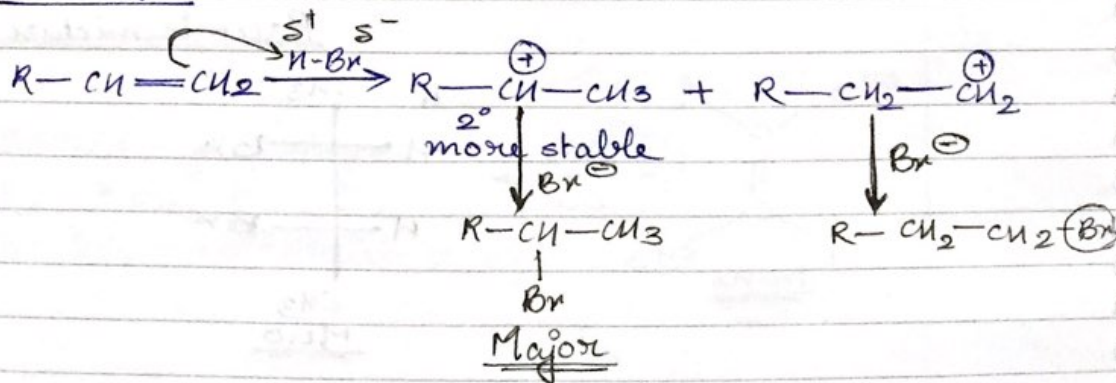 δ⁺ δ⁻
H-Br
R—CH=CH2 → R—CH—CH3 + R—CH2—CH2
⊕ ⊕
2°
more stable
Br⊖ Br⊖
R—CH—CH3 R—CH2—CH2—Br
Br
Major